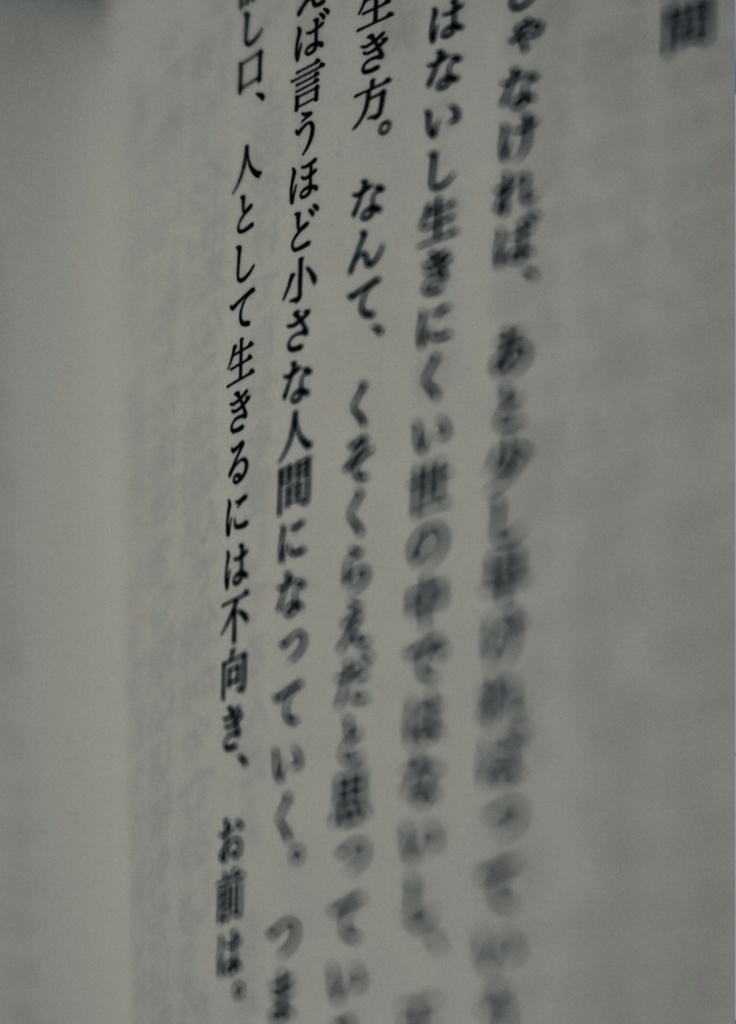 間
じゃなければ、あと少し
はないし生きにくい世の中ではないし、
生き方。なんて、くそくらえだと思ってい
えば言うほど小さな人間になっていく。つま
し口、人として生きるには不向き、お前は。